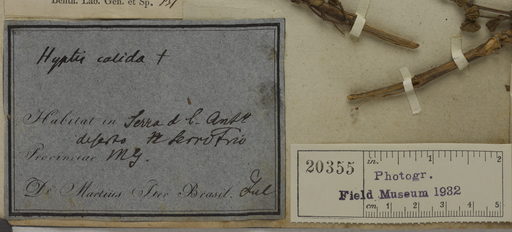 Benth. Lab. Gen. et Sp. 131
Hyptis calida †
Habitat in Serra d C. Antº
deserto Serro Frio
Provinciae MG.
Dr. Martius Iter Brasil. Jul
20355
in. 1 2
Photogr.
Field Museum 1932
cm 1 2 3 4 5